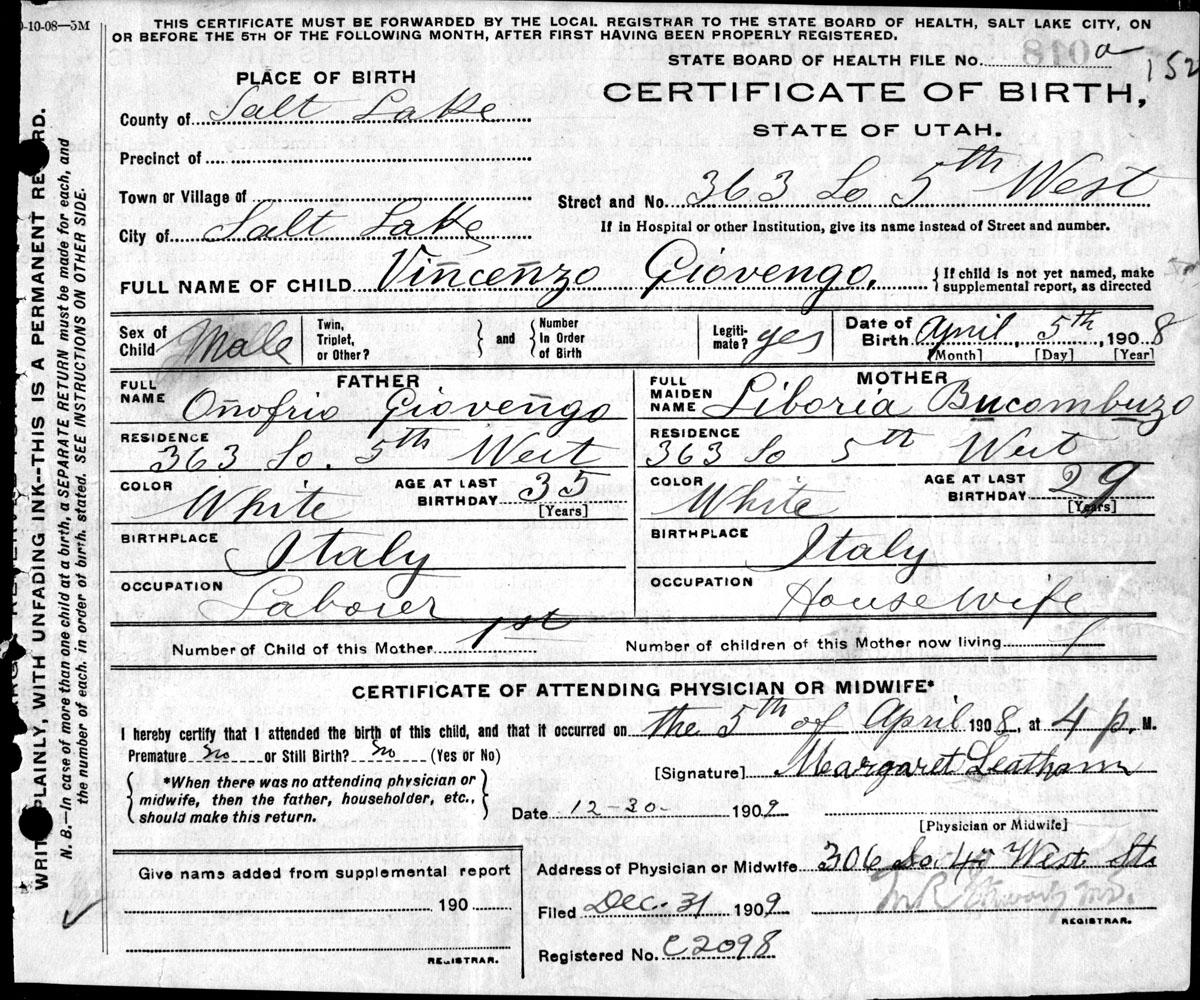 0-10-08—5M
THIS CERTIFICATE MUST BE FORWARDED BY THE LOCAL REGISTRAR TO THE STATE BOARD OF HEALTH, SALT LAKE CITY, ON
OR BEFORE THE 5TH OF THE FOLLOWING MONTH, AFTER FIRST HAVING BEEN PROPERLY REGISTERED.
STATE BOARD OF HEALTH FILE No. a 152
PLACE OF BIRTH
CERTIFICATE OF BIRTH,
STATE OF UTAH.
County of Salt Lake
Precinct of
Town or Village of
City of Salt Lake
Street and No. 363 So 5th West
If in Hospital or other Institution, give its name instead of Street and number.
FULL NAME OF CHILD Vincenzo Giovengo. { If child is not yet named, make
supplemental report, as directed
Sex of
Child Male
Twin,
Triplet,
or Other?
} and {
Number
In Order
of Birth
Legiti-
mate? yes
Date of
Birth April, 5th, 1908
[Month] [Day] [Year]
FATHER
FULL
NAME Onofrio Giovengo
RESIDENCE
363 So. 5th West
COLOR White
AGE AT LAST
BIRTHDAY 35
[Years]
BIRTHPLACE
Italy
OCCUPATION
Laborer
MOTHER
FULL
MAIDEN
NAME Liboria Bucombuzo
RESIDENCE
363 So 5th West
COLOR White
AGE AT LAST
BIRTHDAY 29
[Years]
BIRTHPLACE
Italy
OCCUPATION
House wife
Number of Child of this Mother 1st
Number of children of this Mother now living 1
CERTIFICATE OF ATTENDING PHYSICIAN OR MIDWIFE*
I hereby certify that I attended the birth of this child, and that it occurred on the 5th of April, 1908, at 4 p. M.
Premature No or Still Birth? No (Yes or No)
{ *When there was no attending physician or
midwife, then the father, householder, etc.,
should make this return. }
[Signature] Margaret Leatham
Date 12-30- 1909
[Physician or Midwife]
Address of Physician or Midwife 306 So 4th West Sts
Filed Dec. 31 1909
REGISTRAR.
Registered No. C2098
Give name added from supplemental report
190
REGISTRAR.
WRITE PLAINLY, WITH UNFADING INK--THIS IS A PERMANENT RECORD.
N. B.—In case of more than one child at a birth, a SEPARATE RETURN must be made for each, and
the number of each, in order of birth, stated. SEE INSTRUCTIONS ON OTHER SIDE.